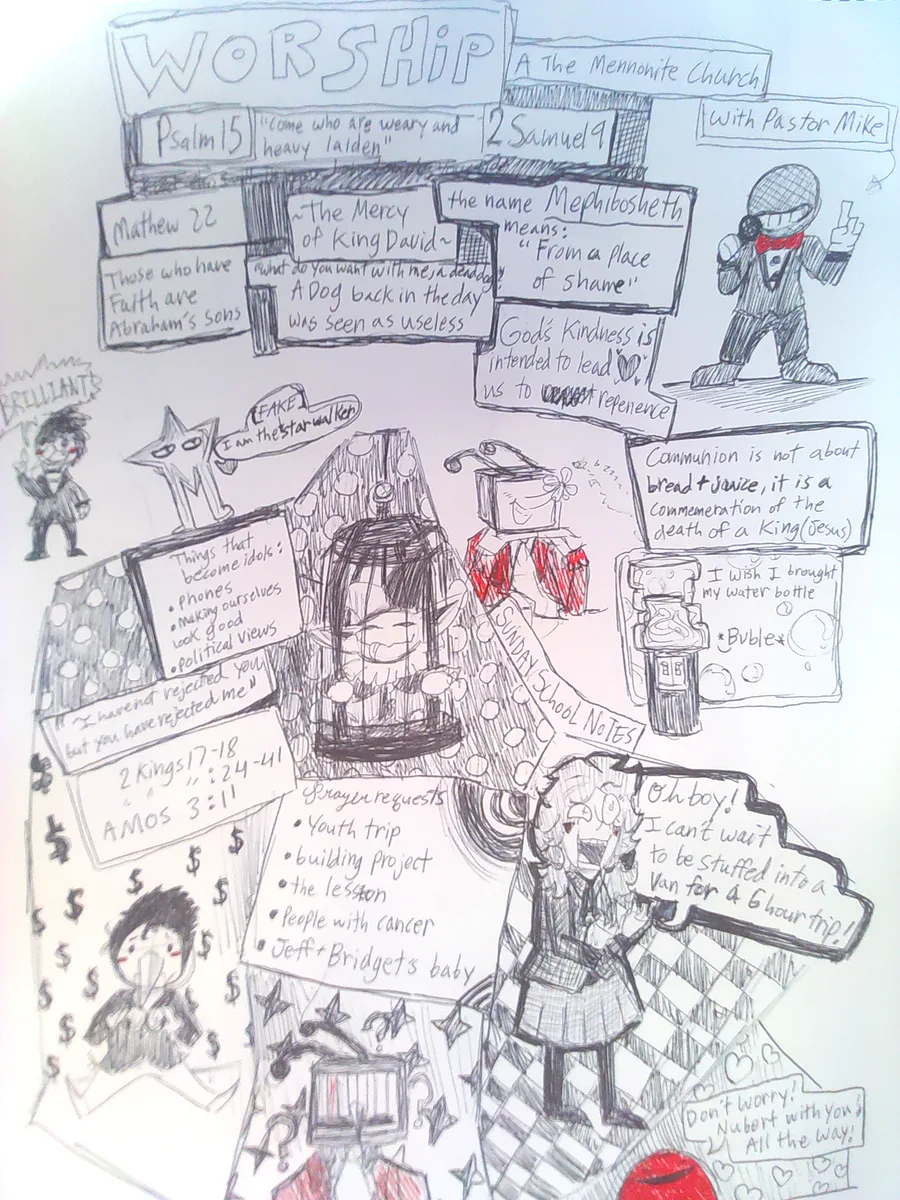 WORSHiP
A The Mennonite Church
with Pastor Mike
Psalm 15
"Come who are weary and
heavy laiden"
2 Samuel 9
Mathew 22
~The Mercy
of King David~
the name Mephibosheth
means:
"From a place
of shame"
Those who have
Faith are
Abraham's sons
"what do you want with me, a dead dog"
A Dog back in the day
was seen as useless
God's Kindness is
intended to lead
us to repenence
BRILLIANT
[FAKE]
I am the starwalker
Communion is not about
bread + juice, it is a
commemeration of the
death of a King (Jesus)
Things that
become idols:
• phones
• Making ourselves
look good
• political views
I wish I brought
my water bottle
*Buble*
SUNDAY School NOTES
"I have not rejected you
but you have rejected me"
2 Kings 17-18
" " : 24-41
AMOS 3:11
Prayer requests
• Youth trip
• building project
• the lesson
• People with cancer
• Jeff + Bridget's baby
Oh boy!
I can't wait
to be stuffed into a
van for a 6 hour trip!
Don't worry!
Nubert with you
All the way!